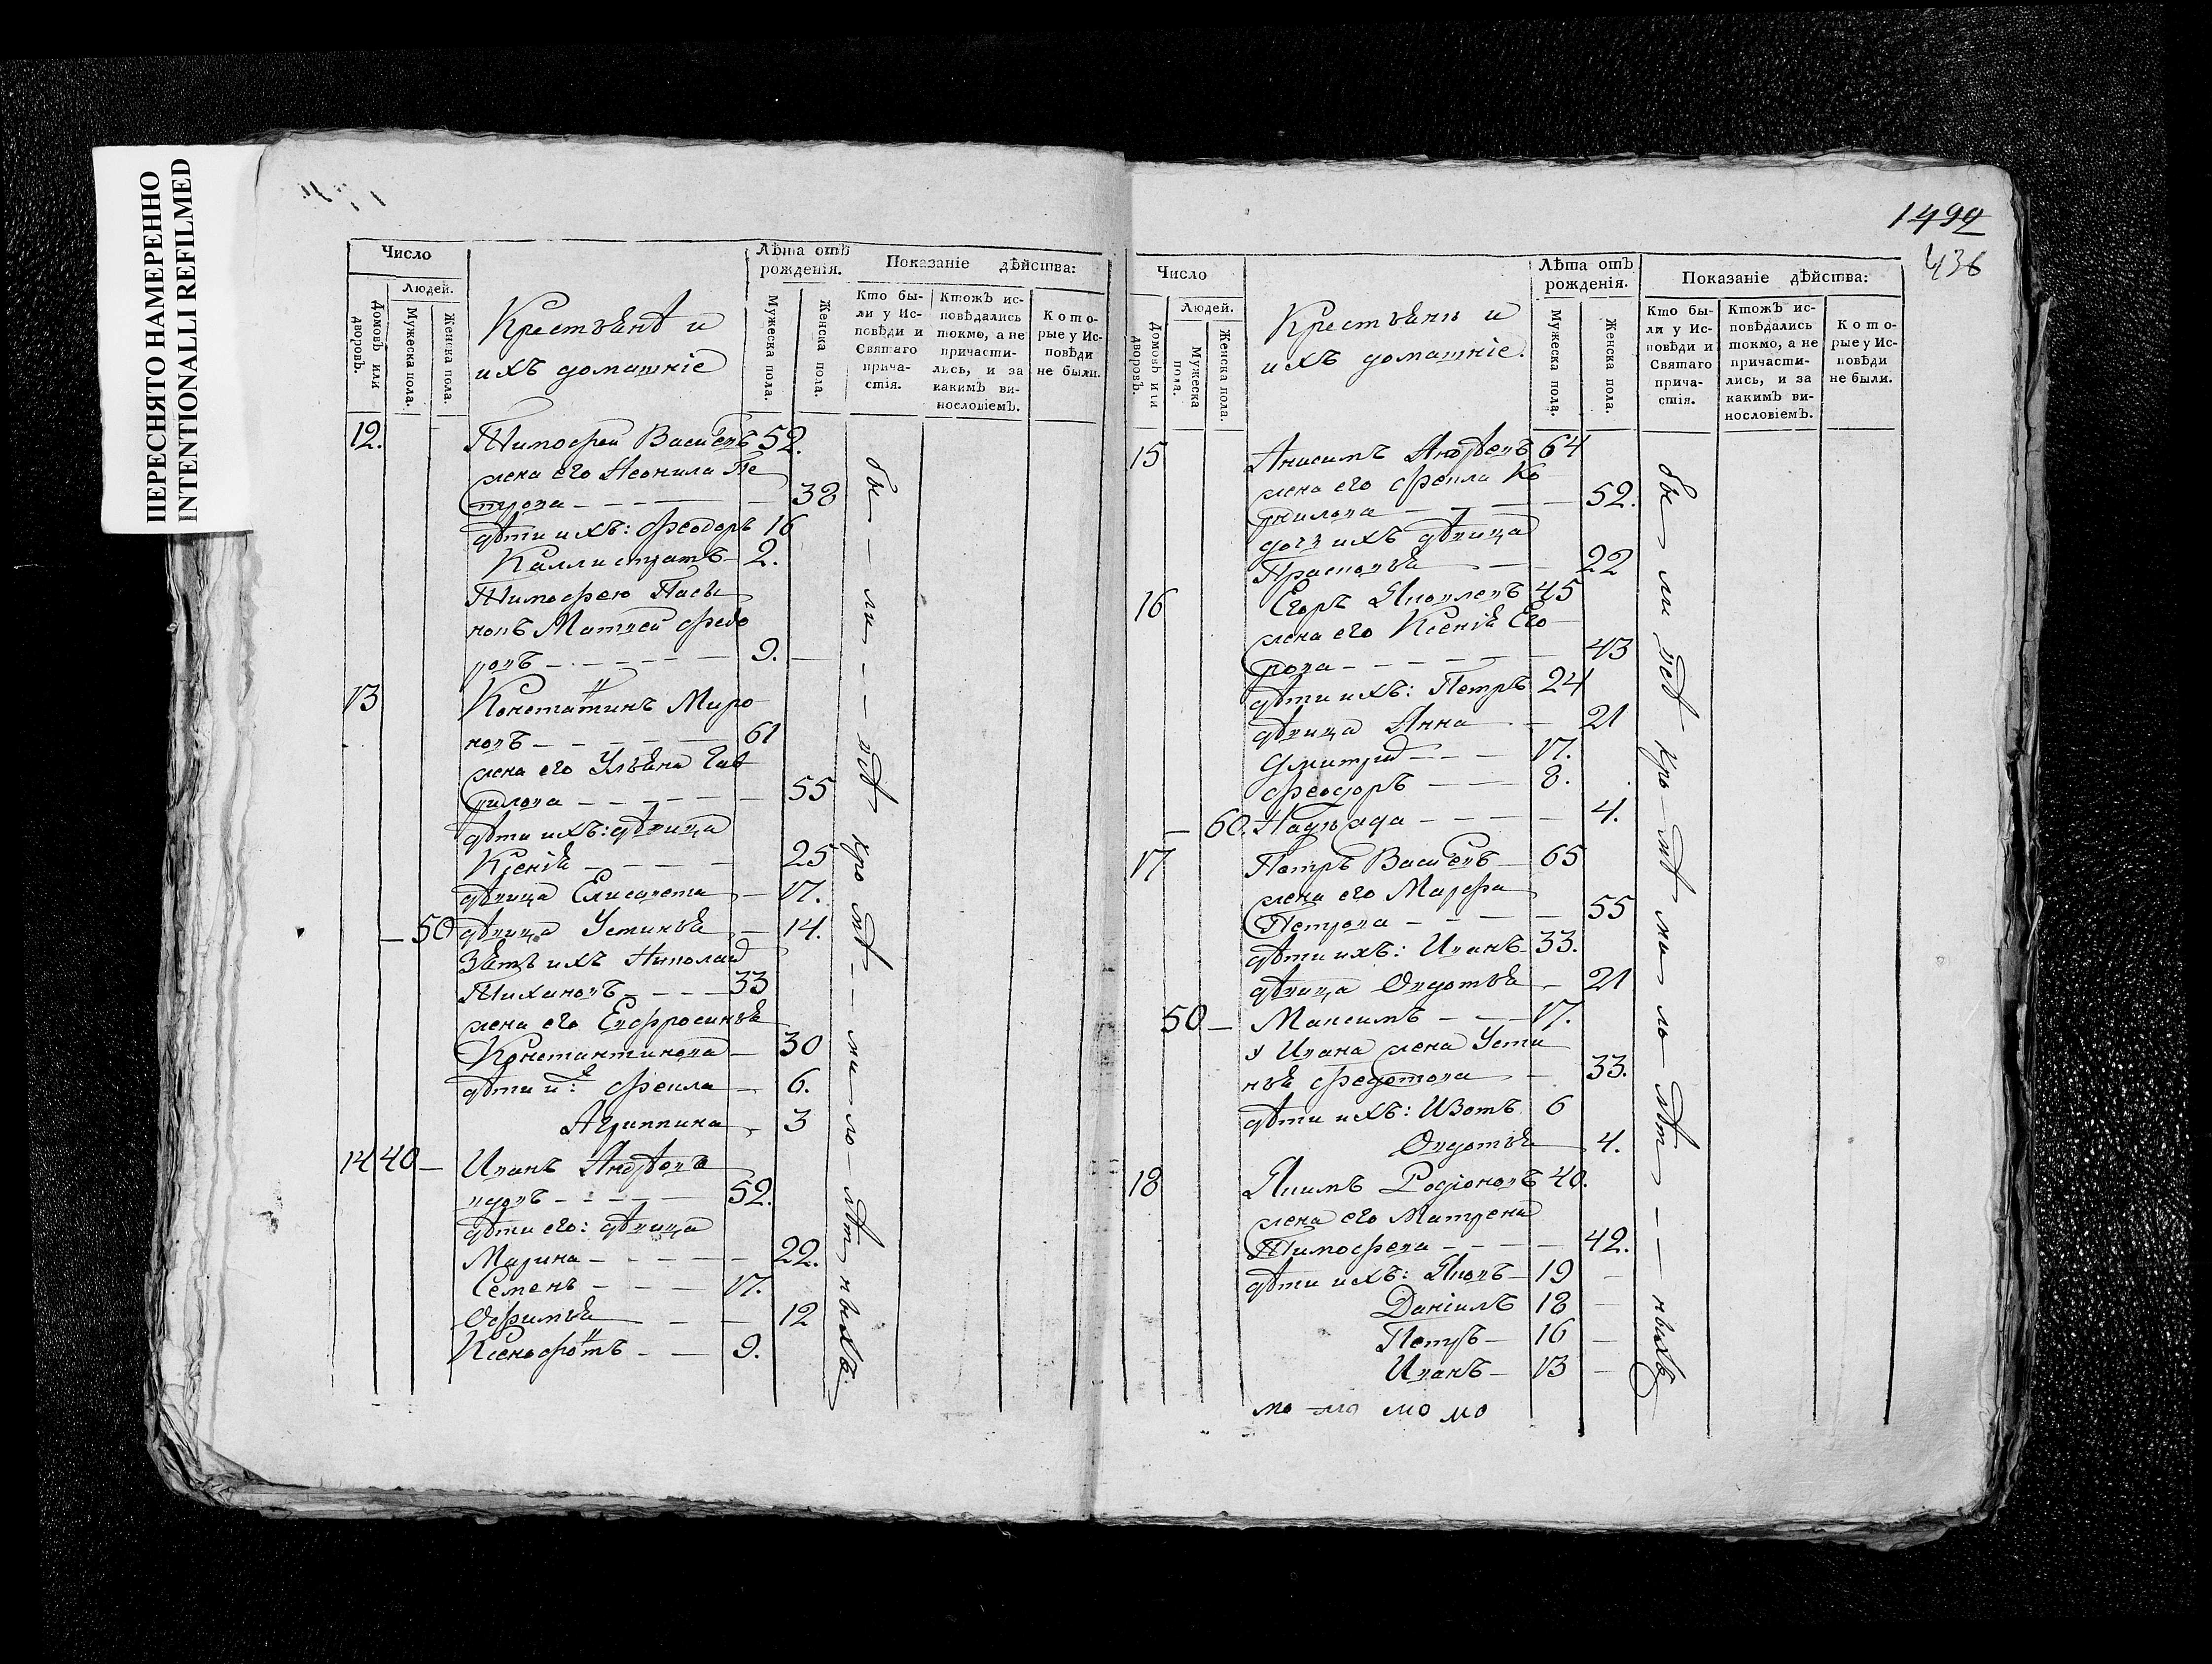 ПЕРЕСНЯТО НАМЕРЕННО
INTENTIONALLI REFILMED
Число
Людей.
Домовъ или дворовъ.
Мужеска пола.
Женска пола.
Крестьянѣ и
ихъ домашніе
Лѣта отъ рожденія.
Мужеска пола.
Женска пола.
Показаніе дѣйства:
Кто были у Исповѣди и Святаго причастія.
Ктожъ исповѣдались токмо, а не причастились, и за какимъ винословіемъ.
Которые у Исповѣди не были.
12. Тимофей Васильевъ 52.
жена его Неонила Пе
трова 38
дѣти ихъ: Феодоръ 16
Каллистратъ 2.
Тимофею Пасы
нокъ Матвей Федо
ровъ 9.
13 Константинъ Миро
новъ 61
жена его Ульяна Гав
рилова 55
дѣти ихъ: дѣвица
Ксенія 25
дѣвица Елисавета 17.
50 дѣвица Устинья 14.
Зять ихъ Николай
Тихановъ 33
жена его Евфросинья
Константинова 30
дѣти ихъ: Фекла 6.
Агриппина 3
14 40 Иванъ Андрѣевъ
вдовъ 52.
дѣти его: дѣвица
Марина 22.
Семенъ 17.
Офимья 12
Ксенофонтъ 9.
бы ли всѣ кро мѣ ма ло лѣт ныхъ.
1492
436
Число
Людей.
Домовъ или дворовъ.
Мужеска пола.
Женска пола.
Крестьяны и
ихъ домашніе.
Лѣта отъ рожденія.
Мужеска пола.
Женска пола.
Показаніе дѣйства:
Кто были у Исповѣди и Святаго причастія.
Ктожъ исповѣдались токмо, а не причастились, и за какимъ винословіемъ.
Которые у Исповѣди не были.
15 Анисимъ Андрѣевъ 64
жена его Фекла Ко
рнилова 52.
дочь ихъ дѣвица
Прасковья 22
16 Егоръ Яковлевъ 45
жена его Ксенія Его
рова 43
дѣти ихъ: Петръ 24
дѣвица Анна 21
Дмитрій 17.
Феодоръ 8.
60. Надежда 4.
17 Петръ Васильевъ 65
жена его Марфа
Петрова 55
дѣти ихъ: Иванъ 33.
дѣвица Овдотья 21
50 Максимъ 17.
у Ивана жена Усти
нья Федотова 33.
дѣти ихъ: Изотъ 6
Овдотья 4.
18 Якимъ Родіоновъ 40.
жена его Матрена
Тимофеева 42.
дѣти ихъ: Яковъ 19
Даніилъ 18
Петръ 16
Иванъ 13
мо мо мо мо
бы ли всѣ кро мѣ ма ло лѣт ныхъ